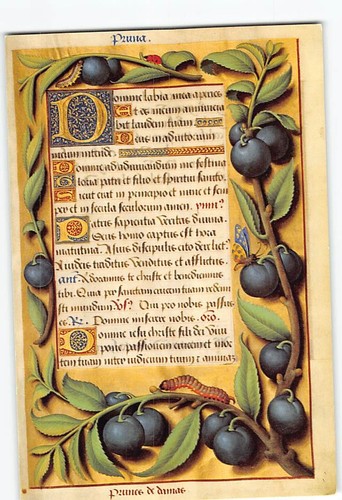 Pruna.
Domine labia mea aperies
Et os meum annuncia
bit laudem tuam
Deus in adiutorium
meum intende.
Domine ad adiuuandum me festina
Gloria patri et filio et spiritui sancto
Sicut erat in principio et nunc et sem
per et in secula seculorum amen.
Patris sapientia veritas diuina.
Deus homo captus est hora
matutina. A suis discipulis cito
A iudeis traditus venditus et afflictus.
ant. Adoramus te christe et benedicimus
tibi. Quia per sanctam crucem tuam redem
isti mundum. Qui pro nobis passus
es. Domine miserere nobis. oro.
Domine iesu christe fili dei viui
pone passionem crucem et mor
tem tuam inter iudicium tuum et animas
Prunes de damas